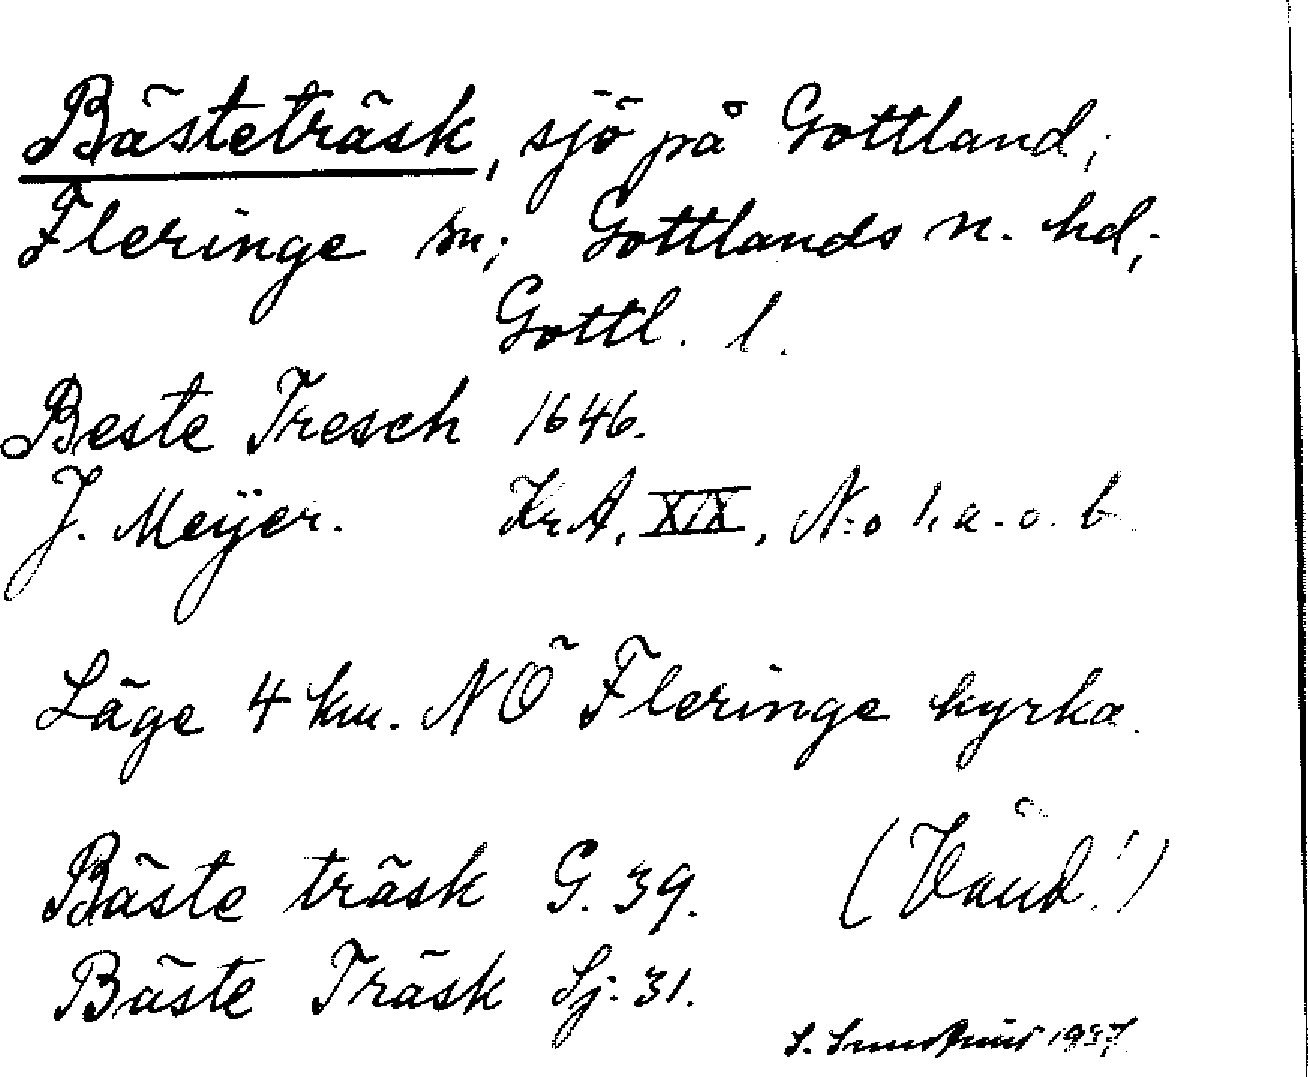 Bästeträsk, sjö på Gottland;
Fleringe sn; Gottlands n. hd,
Gottl. l.
Beste Tresch 1646.
J. Meÿer. KrA, XIX, N:o 1. a. o. b
Läge 4 km. NÖ Fleringe kyrka.
Bäste träsk G. 39. (Vänd!)
Bäste Träsk Sj. 31.
S. 1937